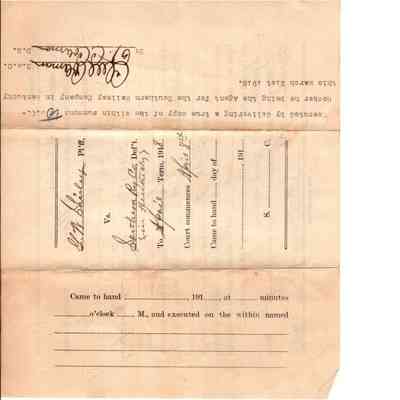 Executed by delivering a true copy of the within summons
Hooker he being the Agent for the Southern Railway Company in Kentucky
this March 21st 1918.
By D.S.
Pl'ff.
Vs.
Southern Ry Co. Def't.
(in Kentucky)
To April Term, 191
Court commences April
Came to hand day of
, 191
S. C.
Came to hand , 191 , at minutes
o'clock M., and executed on the within named